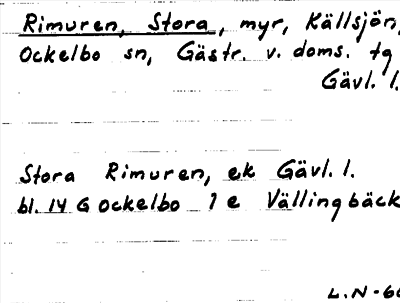 Rimuren, Stora, myr, Källsjön,
Ockelbo sn, Gästr. v. doms. tg
Gävl. l.
Stora Rimuren, ek Gävl. l.
bl. 14 G Ockelbo 1 e Vällingbäck
L.N-66